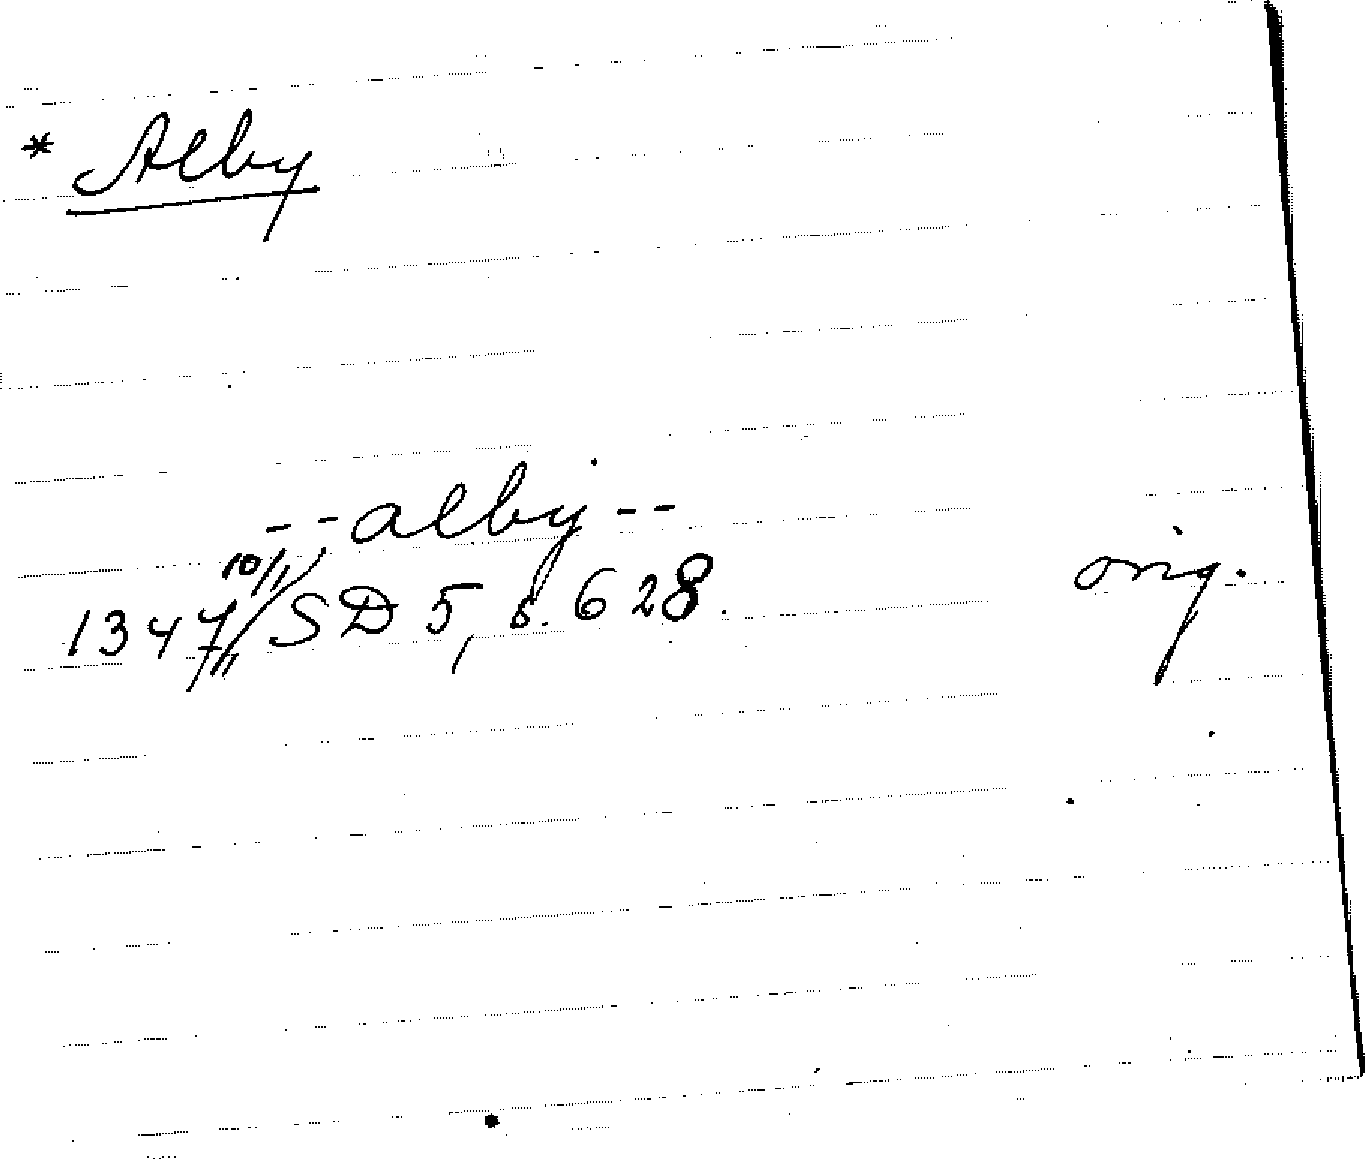 * Alby
--alby--
1347 10/11 SD 5, s. 628. orig.